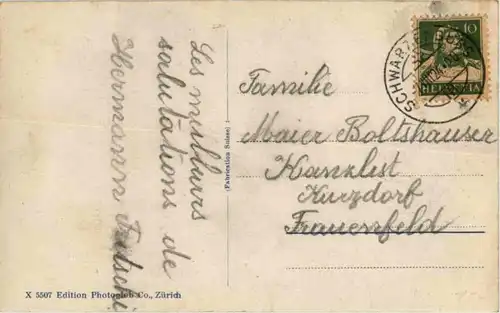 Les milleurs
salutations de
Hermann
Familie
Maier Boltshauser
Kanzlist
Kurzdorf
Frauenfeld
(Fabrication Suisse)
X 5507 Edition Photoglob Co., Zürich
10
HELVETIA